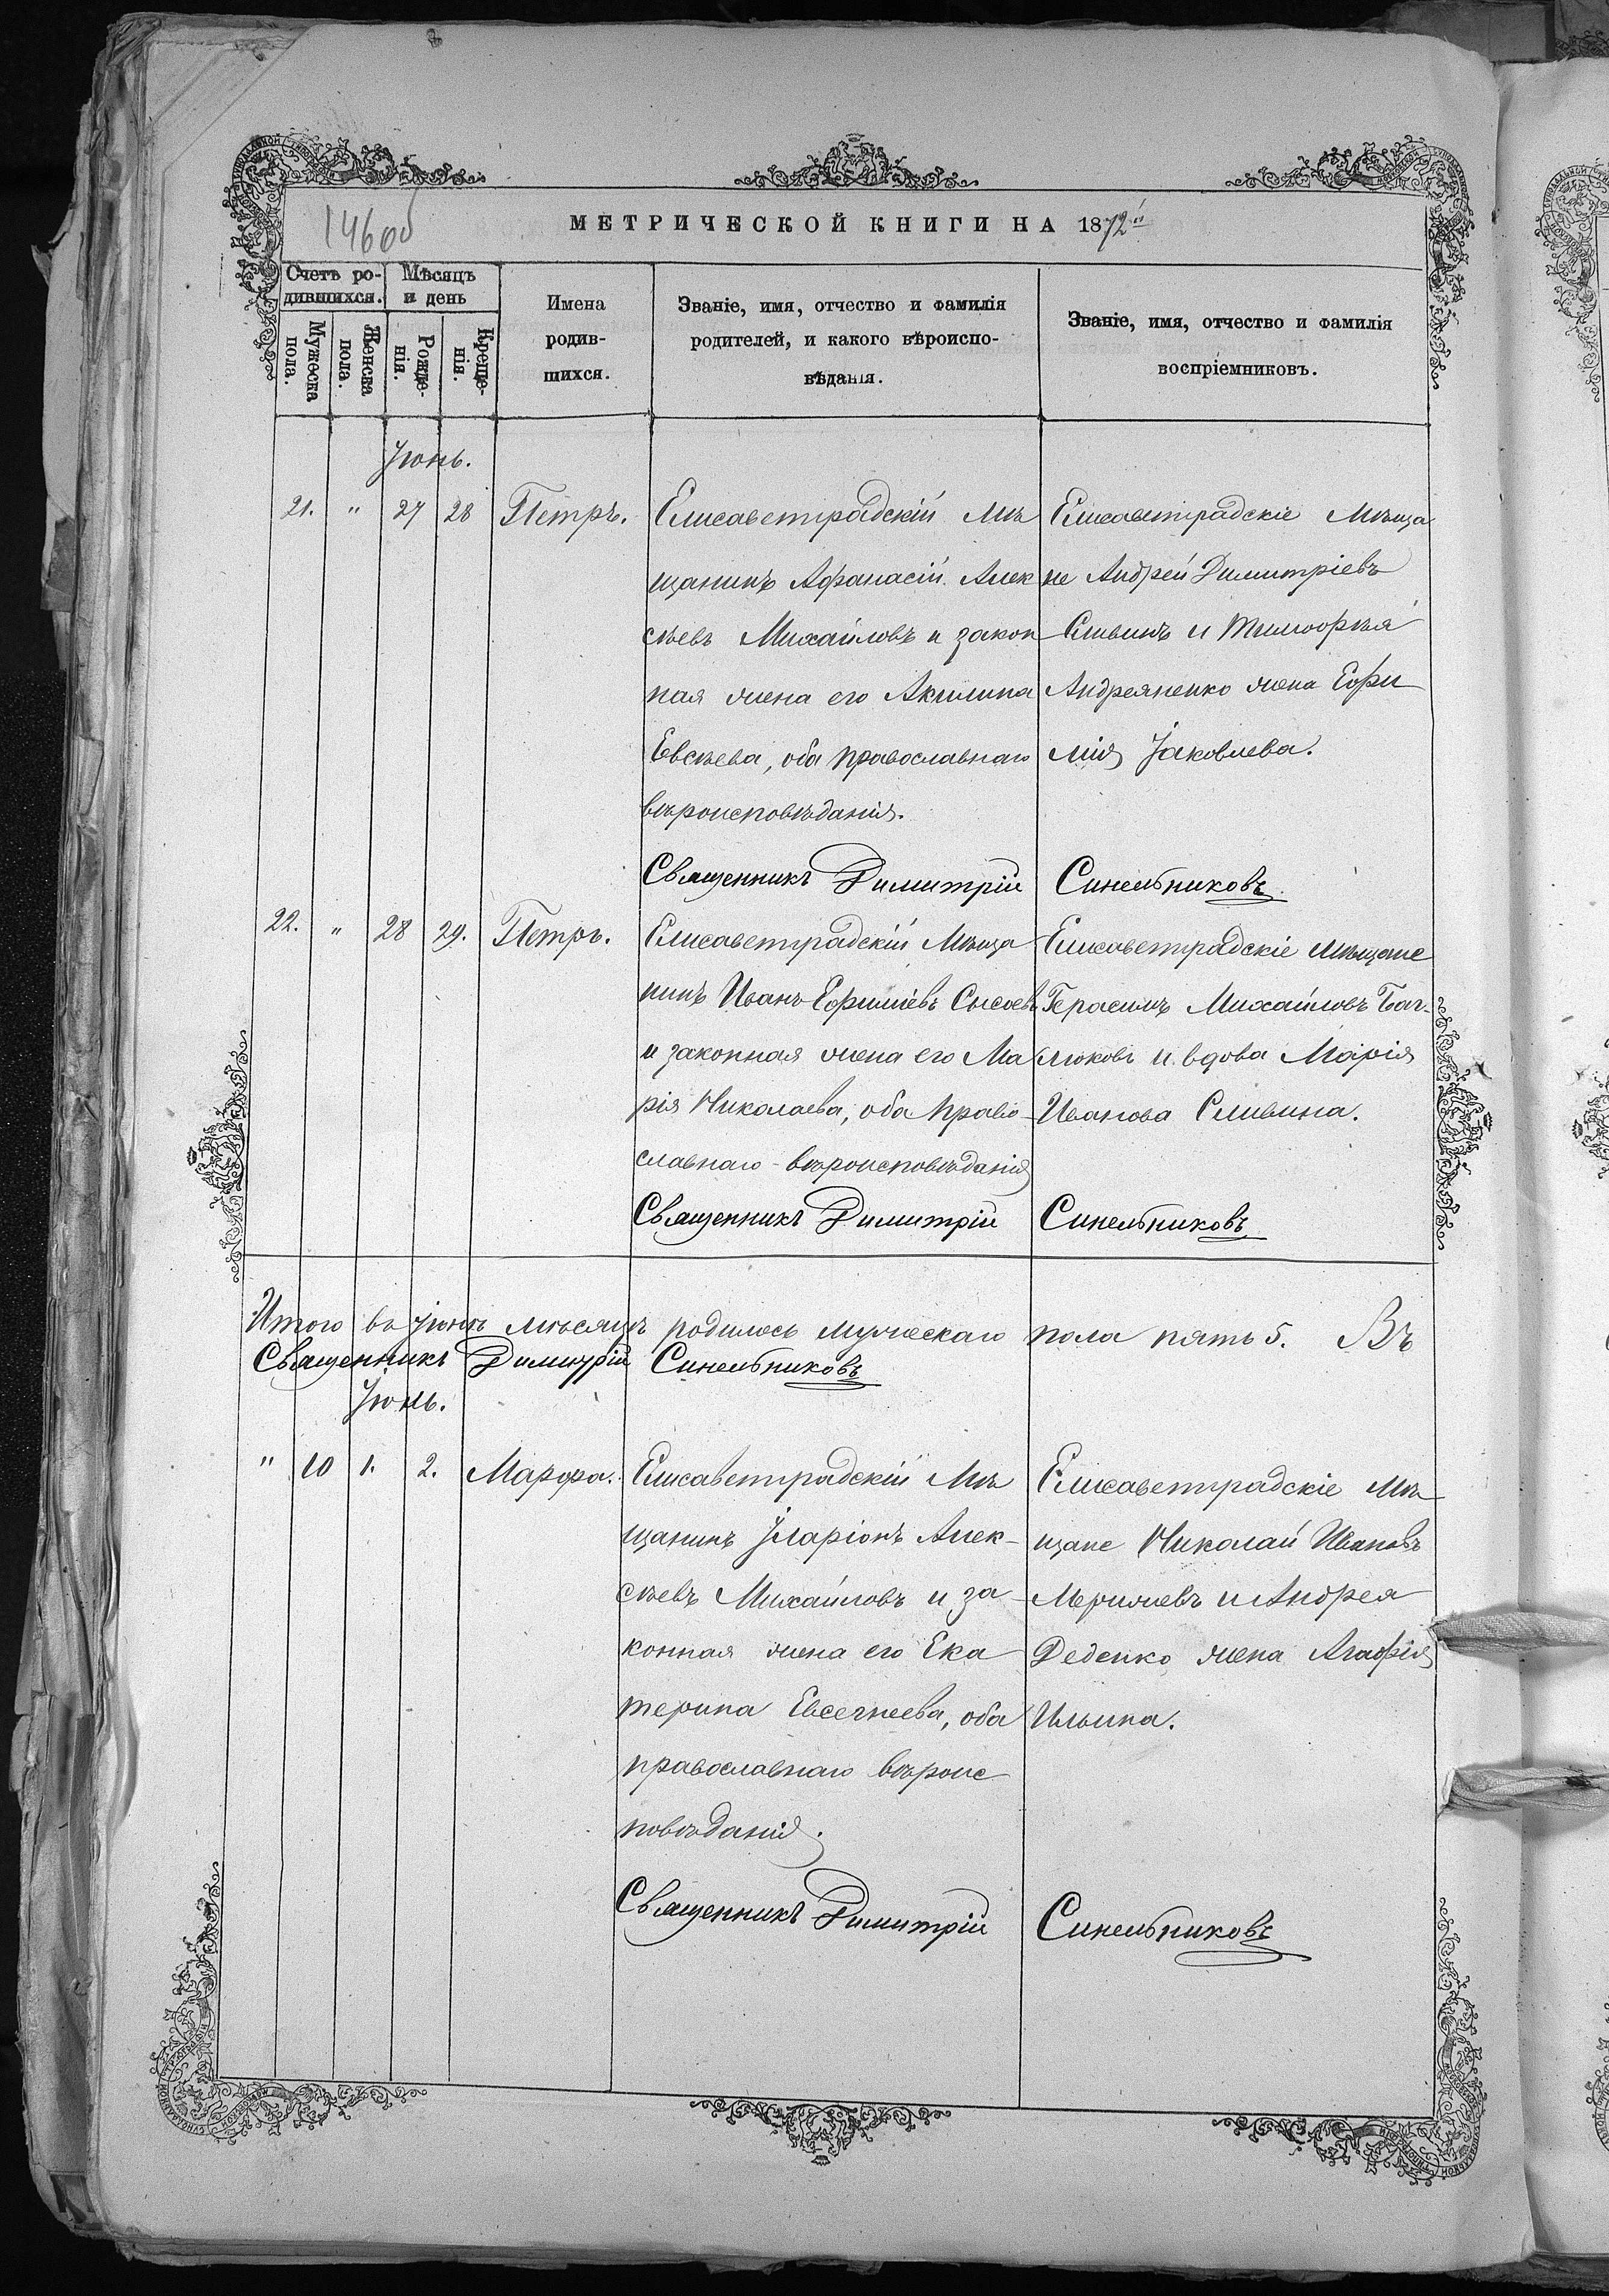 14600
МЕТРИЧЕСКОЙ КНИГИ НА 1872й
Счетъ ро-
дившихся.
Мѣсяцъ
и день
Мужеска
пола.
Женска
пола.
Рожде-
нія.
Креще-
нія.
Имена
родив-
шихся.
Званіе, имя, отчество и фамилія
родителей, и какого вѣроиспо-
вѣданія.
Званіе, имя, отчество и фамилія
воспріемниковъ.
Іюнь.
21. " 27 28 Петръ.
Елисаветградскій Мѣ
щанинъ Афанасій Алек
сѣевъ Михайловъ и закон
ная жена его Акилина
Евсѣева, оба православнаго
вѣроисповѣданія.
Елисаветградскіе Мѣща
не Андрей Димитріевъ
Сливинъ и Тимофѣя
Андреяненко жена Ефи
мія Іаковлева.
Священникъ Димитрій Синельниковъ
22. " 28 29. Петръ.
Елисаветградскій Мѣща
нинъ Иванъ Ефиміевъ Сысоевъ
и законная жена его Ма
рія Николаева, оба право-
славнаго вѣроисповѣданія
Елисаветградскіе мѣщане
Герасимъ Михайловъ
и вдова Марія
Иванова Сливина.
Священникъ Димитрій Синельниковъ
Итого въ Іюнѣ мѣсяцѣ родилось мужескаго пола пять 5. Въ
Священникъ Димитрій Синельниковъ
Іюнь.
" 10 1. 2. Марфа.
Елисаветградскій Мѣ
щанинъ Іларіонъ Алек-
сѣевъ Михайловъ и за-
конная жена его Ека
терина Евсегнеева, оба
православнаго вѣроис
повѣданія.
Елисаветградскіе Мѣ
щане Николай Ивановъ
и Андрея
Деденко жена Агафія
Ильина.
Священникъ Димитрій Синельниковъ